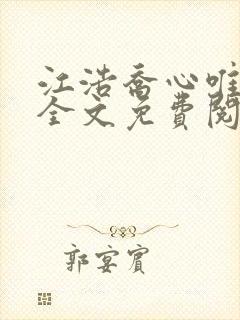 江浩乔心唯
全文免费阅
郭宴宾